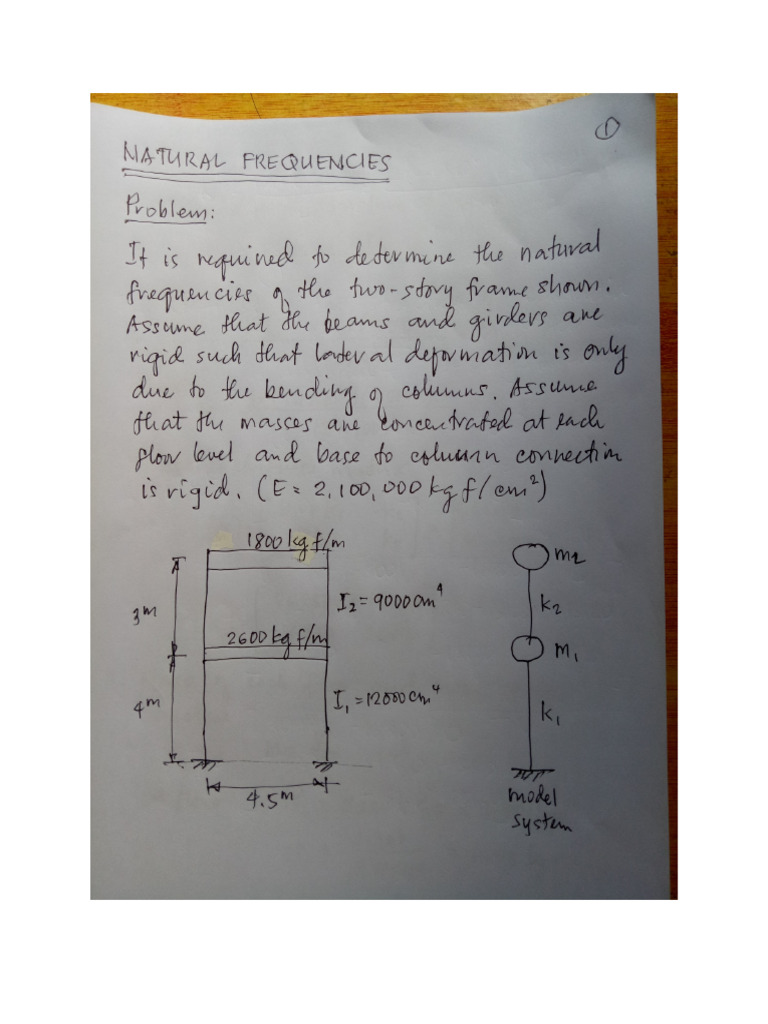 ①
NATURAL FREQUENCIES
Problem:
It is required to determine the natural
frequencies of the two-story frame shown.
Assume that the beams and girders are
rigid such that lateral deformation is only
due to the bending of columns. Assume
that the masses are concentrated at each
floor level and base to column connection
is rigid. (E = 2,100,000 kgf/cm²)
1800 kgf/m
m₂
3m
I₂ = 9000 cm⁴
k₂
2600 kgf/m
m₁
4m
I₁ = 12000 cm⁴
k₁
4.5m
model
system